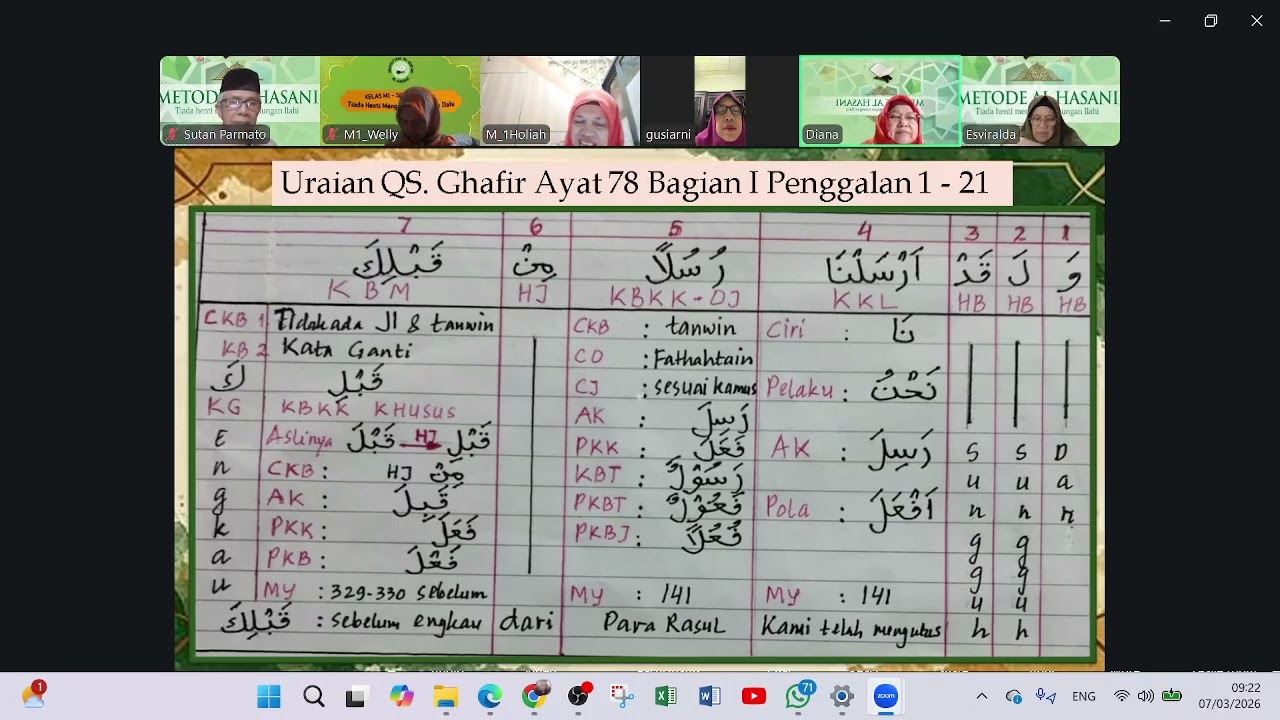 METODE AL HASANI
Tiada henti
Sutan Parmato
KELAS M1 - S
Tiada Henti Meng ungan Ilahi
M1_Welly
M_1Holiah
gusiarni
Diana
METODE AL HASANI
Tiada henti me ungan Ilahi
Esviralda
Uraian QS. Ghafir Ayat 78 Bagian I Penggalan 1 - 21
7 6 5 4 3 2 1
قَبْلِكَ مِنْ رُسُلًا اَرْسَلْنَا قَدْ لَ وَ
KBM HJ KBKK-DJ KKL HB HB HB
CKB 1 Tidak ada ال & tanwin CKB : tanwin Ciri : نَا
KB 2 Kata Ganti CD : Fathahtain
كَ قَبْلِ CJ : sesuai kamus Pelaku : نَحْنُ
KG KBKK KHUSUS AK : رَسِلَ
E Aslinya قَبْلَ HJ قَبْلِ PKK : فَعِلَ AK : رَسِلَ S S D
n CKB : HJ مِنْ KBT : رَسُوْلٌ u u a
g AK : قَبِلَ PKBT : فَعُوْلٌ Pola : اَفْعَلَ n n n
k PKK : فَعِلَ PKBJ : فُعُلًا g g
a PKB : فَعْلَ g g
u MY : 329-330 sebelum MY : 141 MY : 141 u u
قَبْلِكَ : sebelum engkau dari Para Rasul Kami telah mengutus h h
1
71
zoom
ENG
09:22
07/03/2026